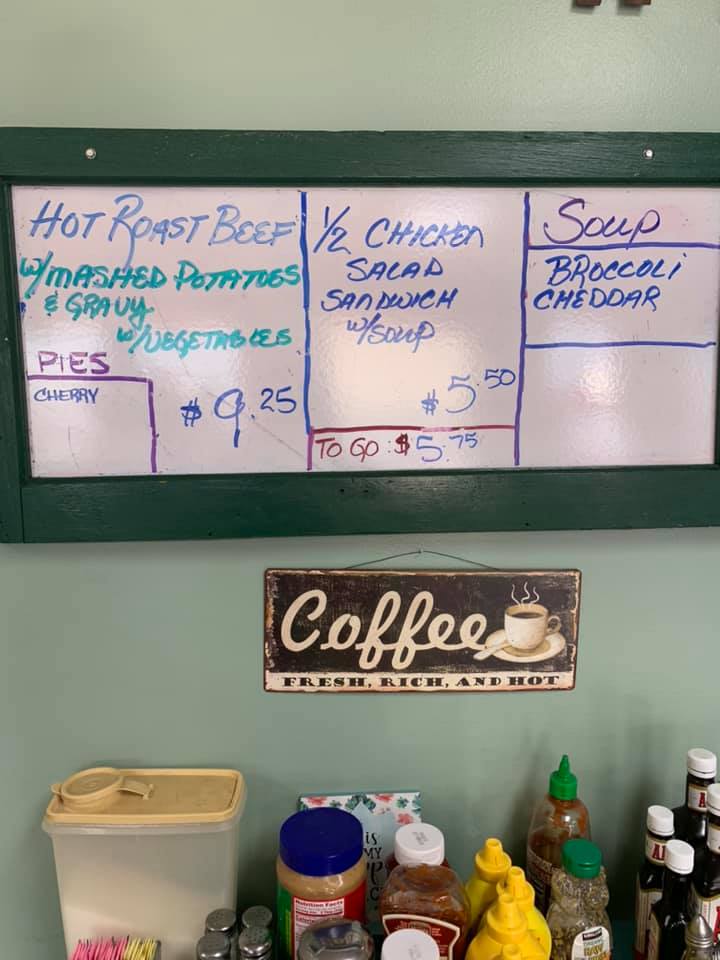 HOT ROAST BEEF
w/MASHED POTATOES
& GRAVY
w/VEGETABLES
$9.25
PIES
CHERRY
1/2 CHICKEN
SALAD
SANDWICH
w/SOUP
$5.50
TO GO: $5.75
SOUP
BROCCOLI
CHEDDAR
Coffee
FRESH, RICH, AND HOT
Nutrition Facts
is
MY